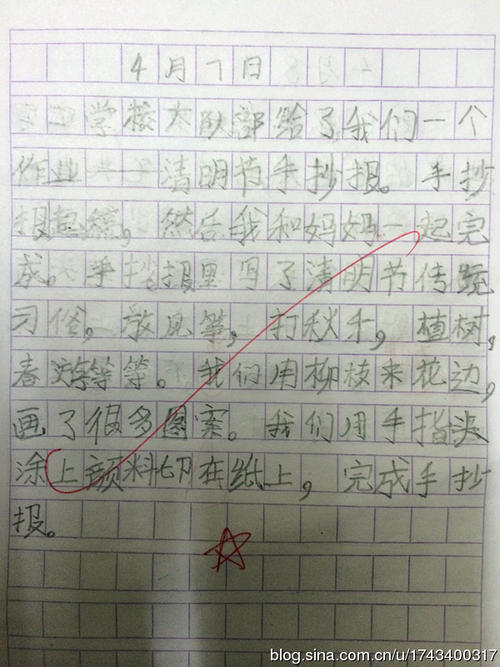 4月7日
学校大队部给了我们一个
作业——清明节手抄报。手抄
报起稿,然后我和妈妈一起完
成。手抄报里写了清明节传统
习俗,放风筝,打秋千,植树,
春游等等。我们用柳枝来花边,
画了很多图案。我们用手指头
涂上颜料印在纸上,完成手抄
报。
blog.sina.com.cn/u/1743400317